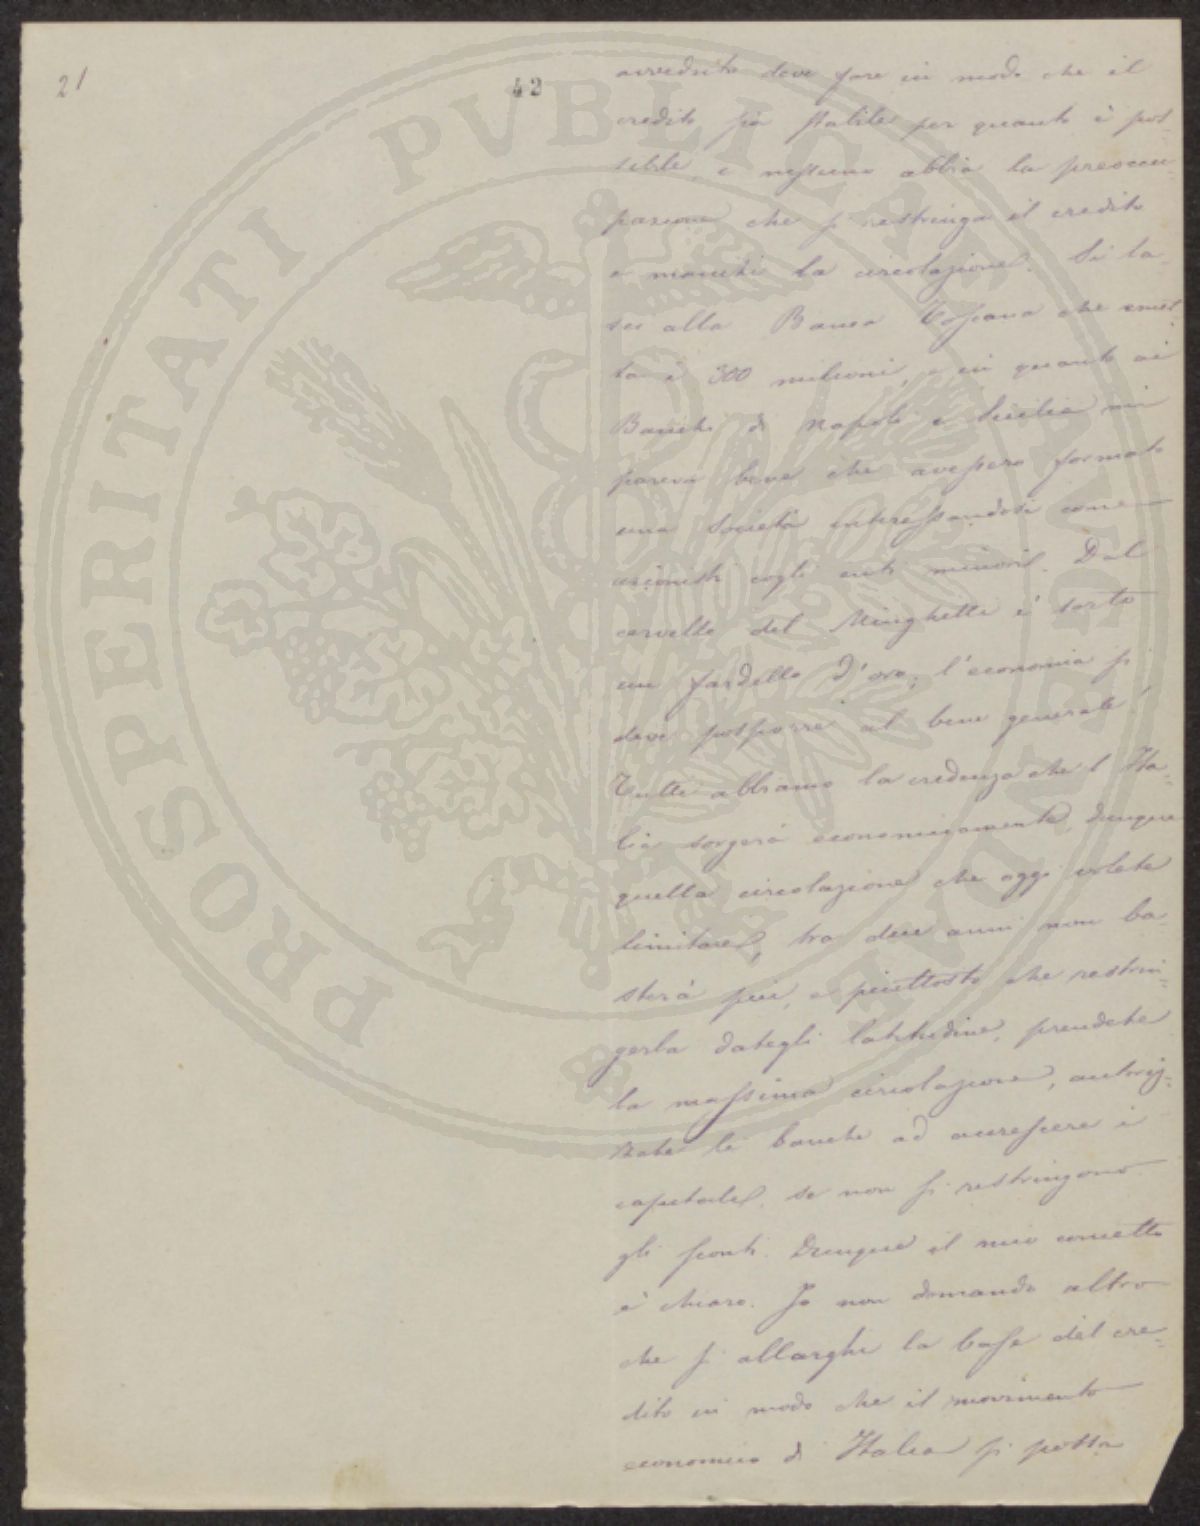 21
42
avveduto deve fare in modo che il
credito sia stabile per quanto è pos-
sibile, e nessuno abbia la preoccu-
pazione che si restringa il credito
e manchi la circolazione. Si la-
sci alla Banca Toscana che emet-
ta i 300 milioni, e in quanto ai
Banchi di Napoli e Sicilia mi
pareva bene che avessero formato
una Società interessandosi come
azionisti cogli enti minori. Dal
cervello del Minghetti è sorto
un fardello d'oro; l'economia si
deve posporre al bene generale!
Tutti abbiamo la credenza che l'Ita-
lia sorgerà economicamente, dunque
quella circolazione che oggi volete
limitare, tra dieci anni non ba-
sterà più, e piuttosto che restrin-
gerla dategli latitudine, prendete
la massima circolazione, autoriz-
zate le banche ad accrescere i
capitali, se non si restringono
gli sconti. Dunque il mio concetto
è chiaro. Io non domando altro
che si allarghi la base del cre-
dito in modo che il movimento
economico di Italia si possa
PROSPERITATI PVBLICAE